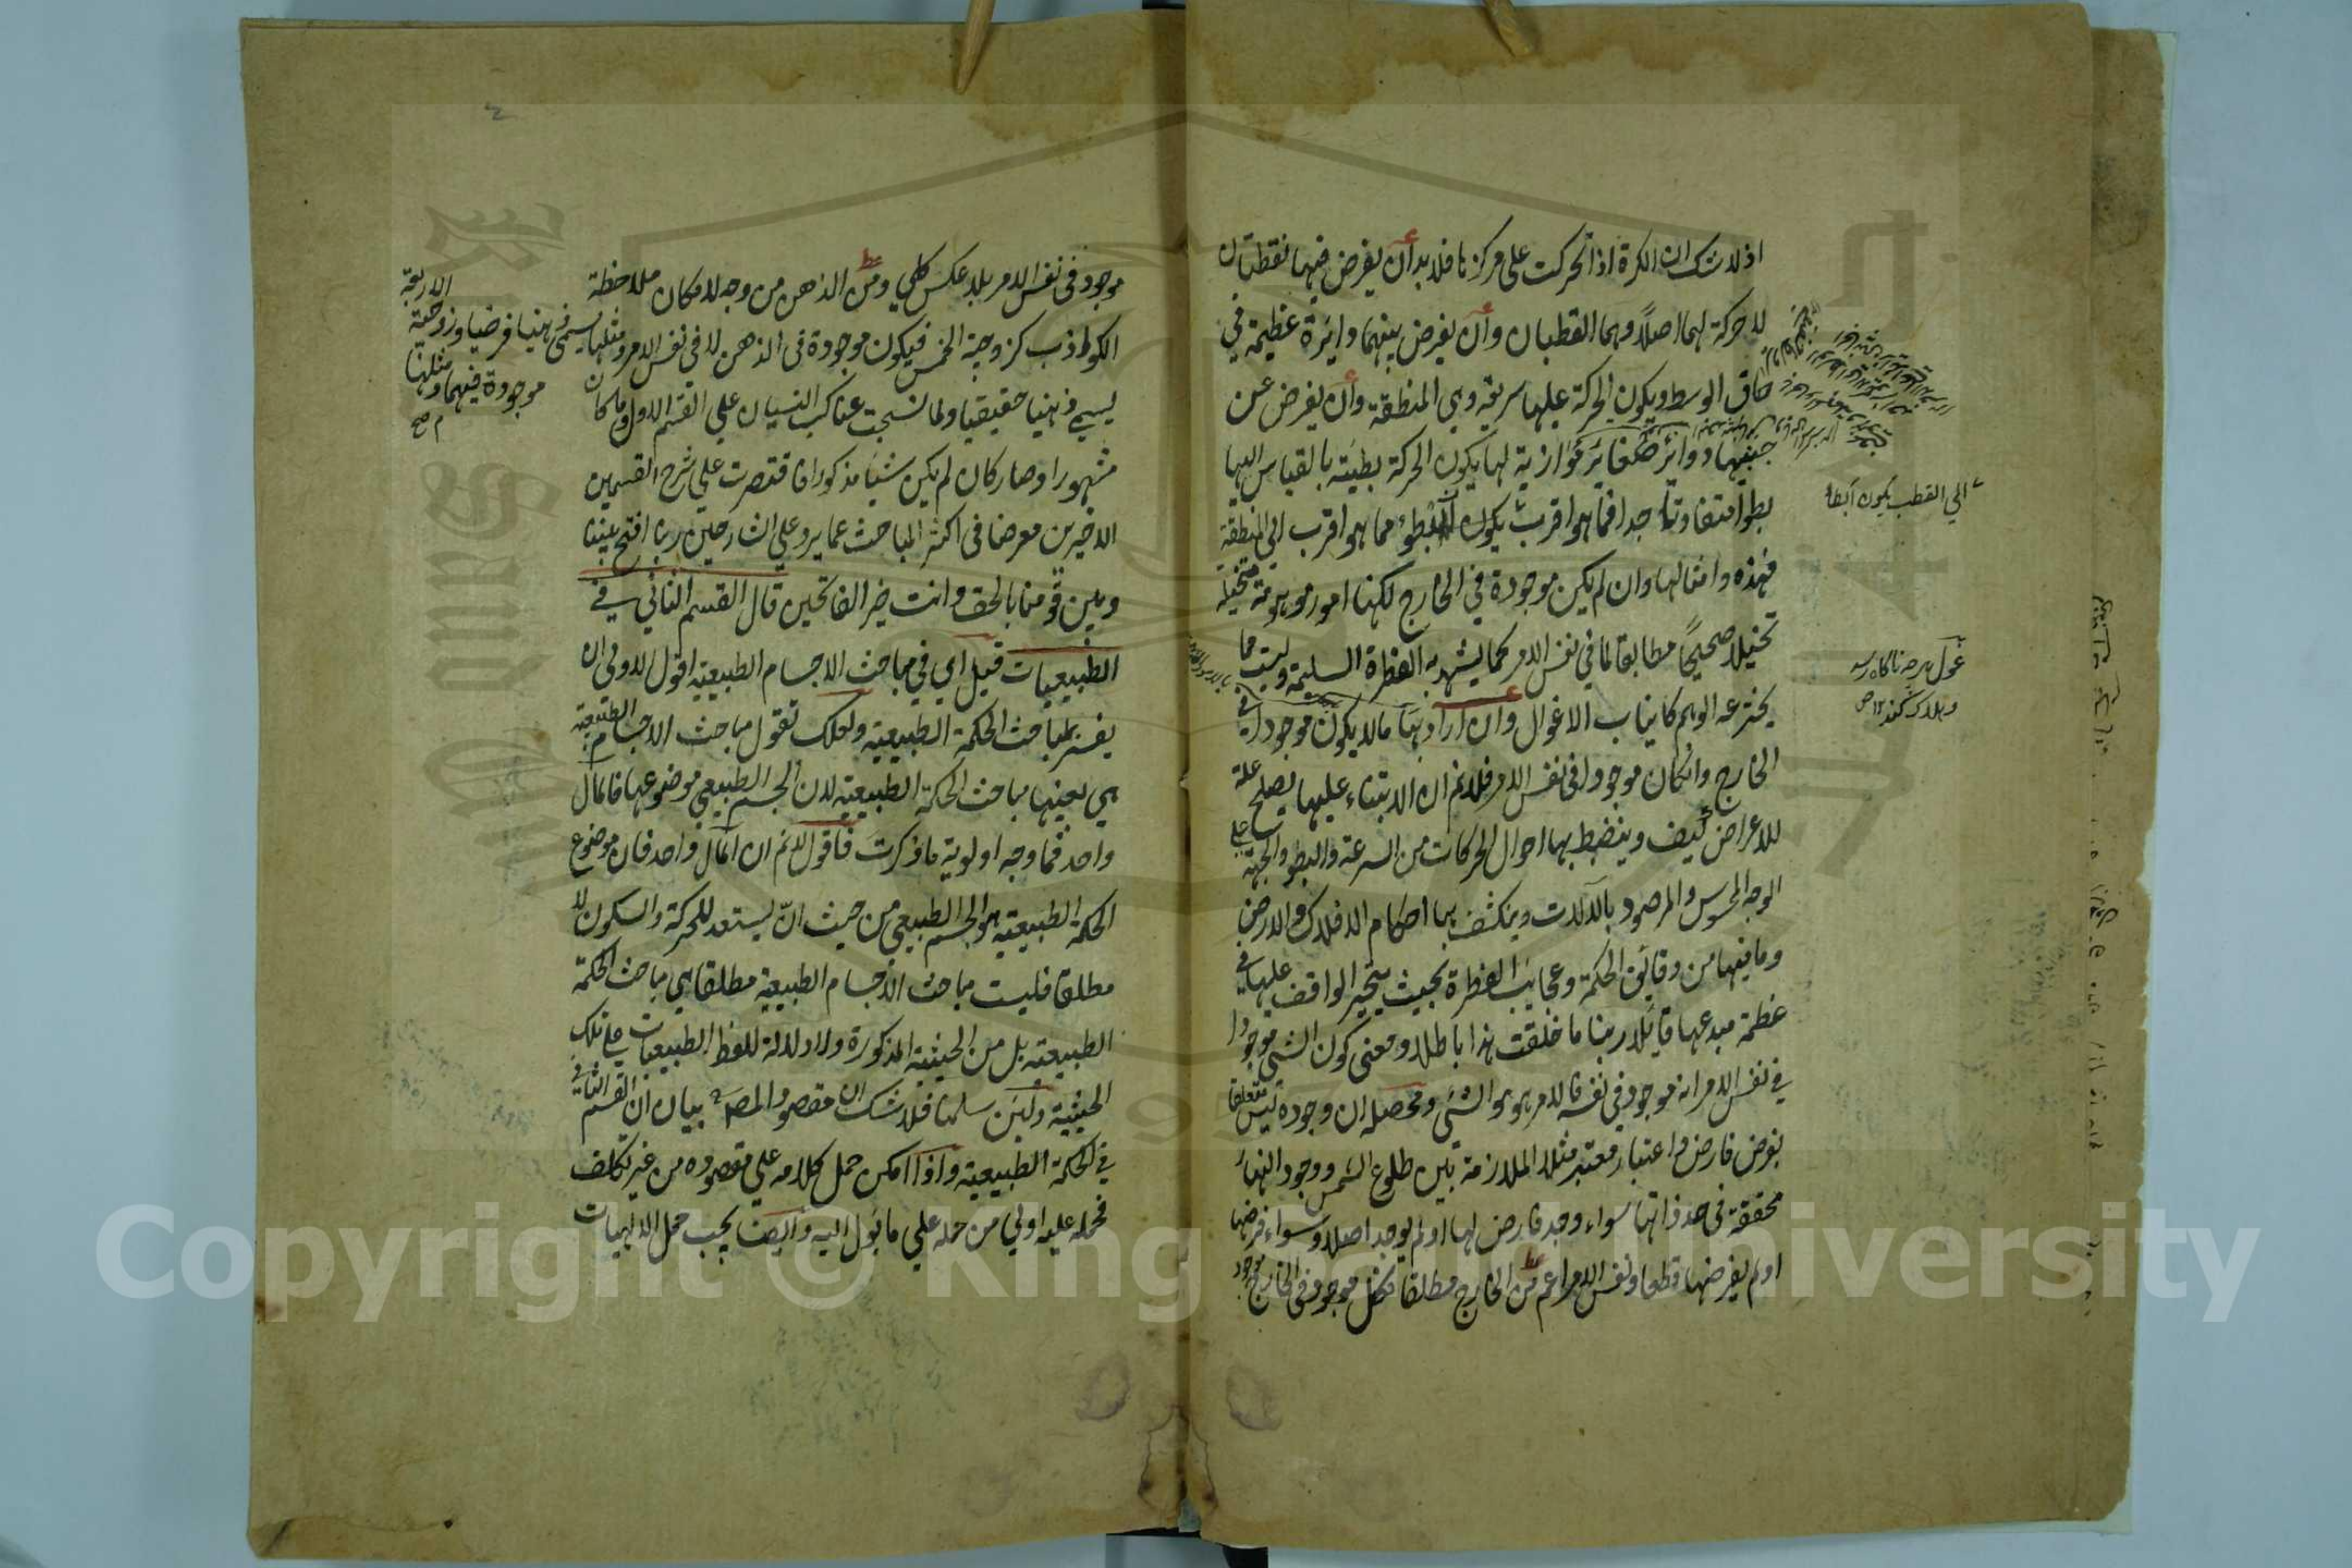 اذ لا شك ان الكرة اذا تحركت على مركزها فلا بد أن يفرض فيها نقطتان
لا حركة لهما اصلاً وهما القطبان وأن يفرض بينهما دائرة عظيمة في
حاق الوسط ويكون الحركة عليها سريعة وهي المنطقة وأن يفرض عن
جنبيها دوائر صغائر موازية لها يكون الحركة بطيئة بالقياس اليها
بطوا متفاوتا جدا فما هو اقرب يكون ابطؤ مما هو اقرب الى المنطقة
الي القطب يكون ابطا
فهذه وامثالها وان لم يكن موجودة في الخارج لكنها امور موهومة متخيلة
تخيلا صحيحاً مطابقا لما في نفس الامر كما يشهد به الفطرة السليمة وليست مما
غول هرچه ناگاه رسد
وهلاك كند ١٢ ص
يخترعه الوهم كانياب الاغوال وان اراد بها مالا يكون موجودا في
الخارج وان كان موجودا في نفس الامر فلا نم ان الابتناء عليها يصلح علة
للاعراض كيف وينضبط بها احوال الحركات من السرعة والبطو والجهة على
الوجه المحسوس والمرصود بالآلات وينكشف بها احكام الافلاك والارض
وما فيها من دقائق الحكمة وعجايب الفطرة بحيث يتحير الواقف عليها في
عظمة مبدعها قايلا ربنا ما خلقت هذا باطلا ومعنى كون الشئ موجودا
في نفس الامر انه موجود في نفسه فالامر هو هو الشئ ومحصله ان وجوده ليس متعلقا
بفرض فارض واعتبار معتبر مثلا الملازمة بين طلوع الشمس ووجود النهار
محققة في حد ذاتها سواء وجد فارض لها او لم يوجد اصلا وسواء فرضها
او لم يفرضها قطعا ونفس الامر اعم من الخارج مطلقا فكل موجود في الخارج موجود
موجود في نفس الامر بلا عكس كلي ومن الذهن من وجه لامكان ملاحظة
الكواذب كزوجية الخمس فيكون موجودة في الذهن لا في نفس الامر ومثلها يسمى ذهنيا فرضيا وزوجية
الاربعة
موجودة فيهما ومثلها
صح
يسمي ذهنيا حقيقيا ولما نسجت عناكب النسيان علي القسم الاول وما كان
مشهورا وصار كان لم يكن شيئا مذكورا اقتصرت علي شرح القسمين
الاخيرين معرضا في اكثر المباحث عما يرد علي الشارحين ربنا افتح بيننا
وبين قومنا بالحق وانت خير الفاتحين قال القسم الثاني في
الطبيعيات قيل اي في مباحث الاجسام الطبيعية اقول الاولى ان
يفسر بمباحث الحكمة الطبيعية ولعلك تقول مباحث الاجسام الطبيعية
هي بعينها مباحث الحكمة الطبيعية لان الجسم الطبيعي موضوعها فالمآل
واحد فما وجه اولوية ما ذكرت فاقول لا نم ان المآل واحد فان موضوع
الحكمة الطبيعية هو الجسم الطبيعي من حيث انّه يستعد للحركة والسكون لا
مطلقا فليست مباحث الاجسام الطبيعية مطلقا هي مباحث الحكمة
الطبيعية بل من الحيثية المذكورة ولا دلالة للفظ الطبيعيات على تلك
الحيثية ولئن سلمنا فلا شك ان مقصود المصـ بيان ان القسم الثاني
في الحكمة الطبيعية واذا امكن حمل كلامه علي مقصوده من غير تكلف
فحمله عليه اولي من حمله علي ما يؤل اليه وايضا يجب حمل الالهيات
Copyright © King Saud University